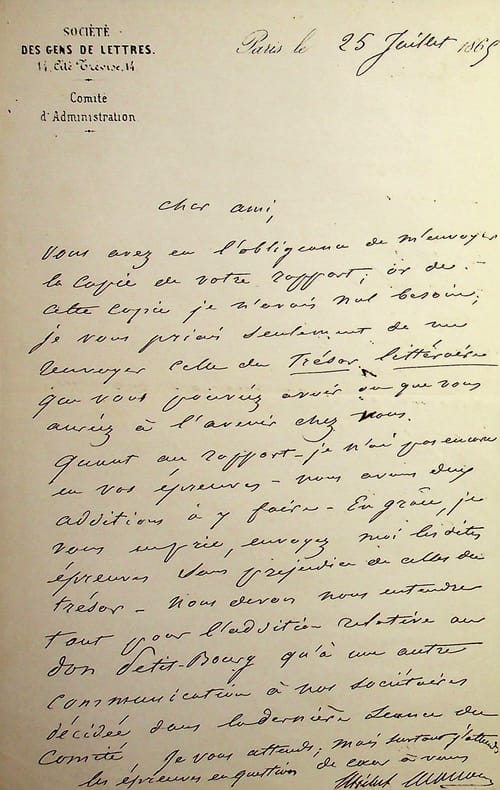 SOCIÉTÉ
DES GENS DE LETTRES.
14, Cité Trévise, 14
Comité
d'Administration
Paris le 25 Juillet 1865
cher ami,
vous avez eu l'obligeance de m'envoyer
la copie de votre rapport; or de
cette copie je n'avais nul besoin;
je vous priais seulement de me
renvoyer celle du Trésor littéraire
que vous pouviez avoir ou que vous
auriez à l'avenir chez vous.
Quant au rapport - je n'ai pas encore
eu vos épreuves - nous avons deux
additions à y faire - En grâce, je
vous en prie, envoyez moi les dites
épreuves sans préjudice de celles du
trésor - nous devons nous entendre
tant pour l'addition relative au
don Petit-Bourg qu'à une autre
communication à nos sociétaires
décidée dans la dernière séance du
Comité Je vous attends; mais surtout j'attends
les épreuves en question de cœur à vous
Michel Masson